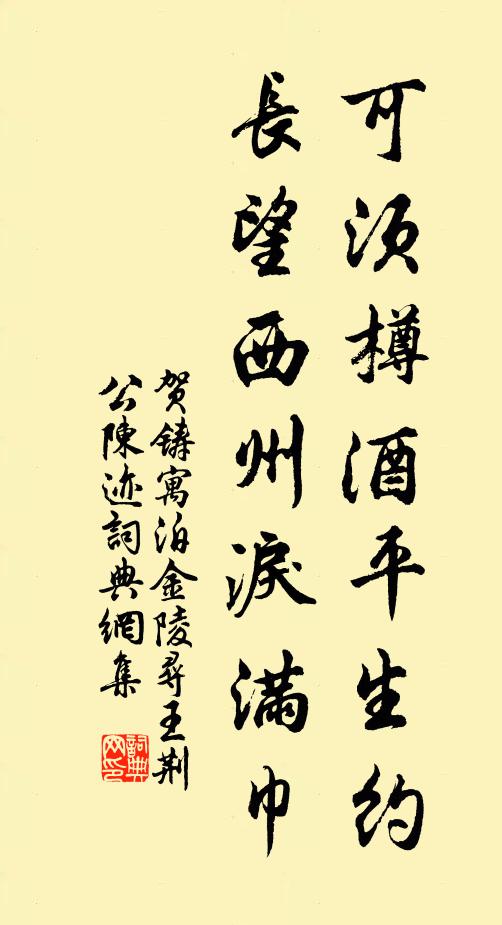 可须樽酒平生约
長望西州淚滿巾
贺鋳寓泊金陵尋王荆
公陳迹詞典網集
詞典網印